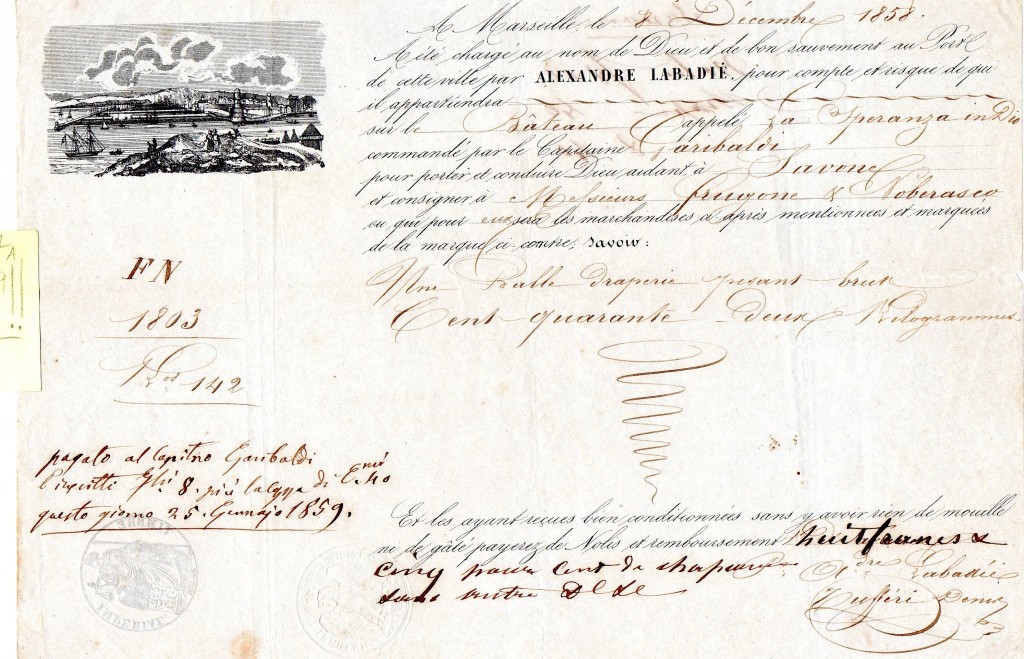 A Marseille, le 8 Décembre 1858.
A été chargé au nom de Dieu et de bon sauvement au Port
de cette ville par ALEXANDRE LABADIÉ, pour compte et risque de qui
il appartiendra
sur le Bâteau appelé La Speranza in Dio
commandé par le Capitaine Garibaldi
pour porter et conduire Dieu aidant, à Savone
et consigner à Messieurs Frugone & Noberasco
ou qui pour eux sera les marchandises ci après mentionnées et marquées
de la marque ci-contre, savoir:
FN
1803
142
Une Balle draperie pesant brut
Cent quarante deux Kilogrammes
pagato al Capitno Garibaldi
8. più la
questo giorno 25. Gennajo 1859.
Et les ayant reçues bien conditionnées sans y avoir rien de mouillé
ni de gâté payerez de Nolis et remboursement huit francs &
cinq pour cent de chapeau
sans autre
Labadié